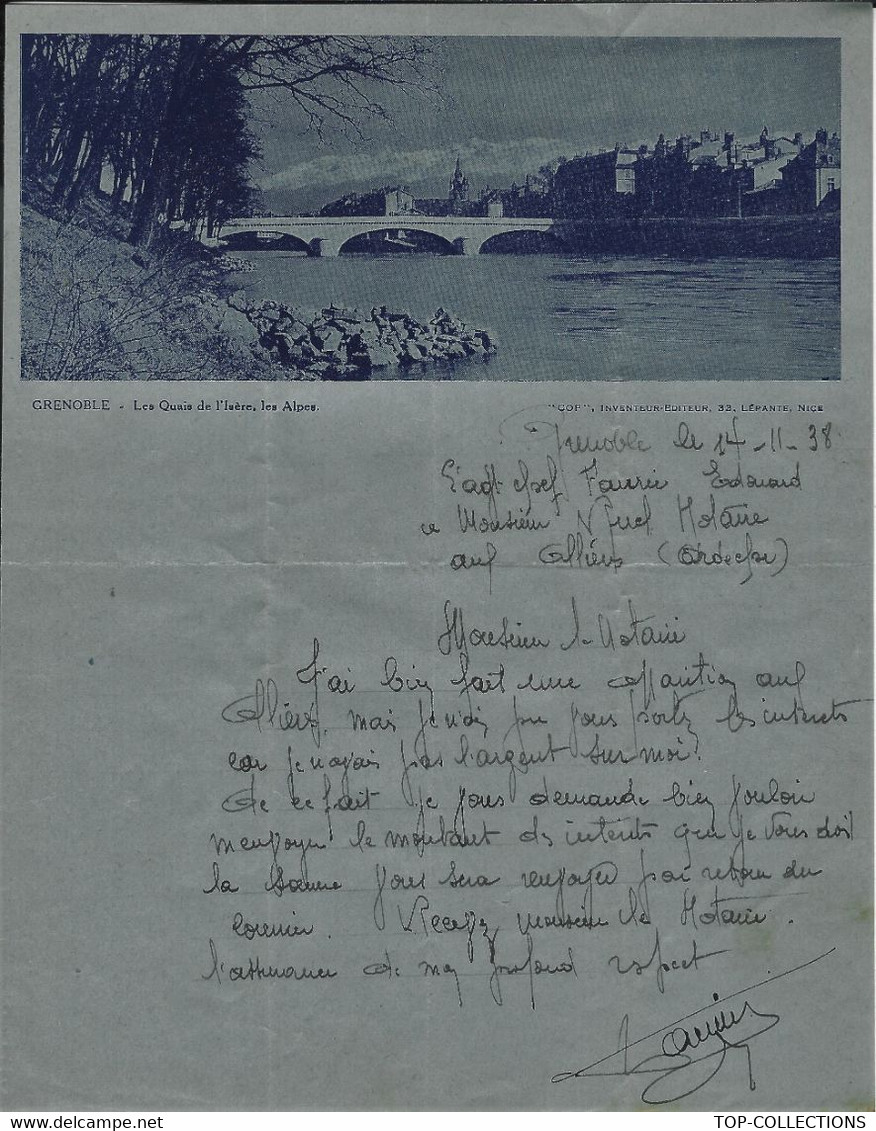 GRENOBLE - Les Quais de l'Isère, les Alpes.
"GOF", INVENTEUR-EDITEUR, 32, LÉPANTE, NICE
Grenoble le 14-11-38
L'agt chef Faurie Edouard
a Monsieur Notaire
aux Olliéres (Ardeche)
Monsieur le Notaire
J'ai bien fait une apparition aux
Olliéres, mais je n'ai pu vous porter les interets
car je n'avais pas l'argent sur moi.
De ce fait je vous demande bien vouloir
m'envoyer le montant des interets que je vous dois
la somme vous sera renvoyée par retour du
courrier. Recevez monsieur le Notaire.
l'assurance de mon profond respect
Faurie
TOP-COLLECTIONS